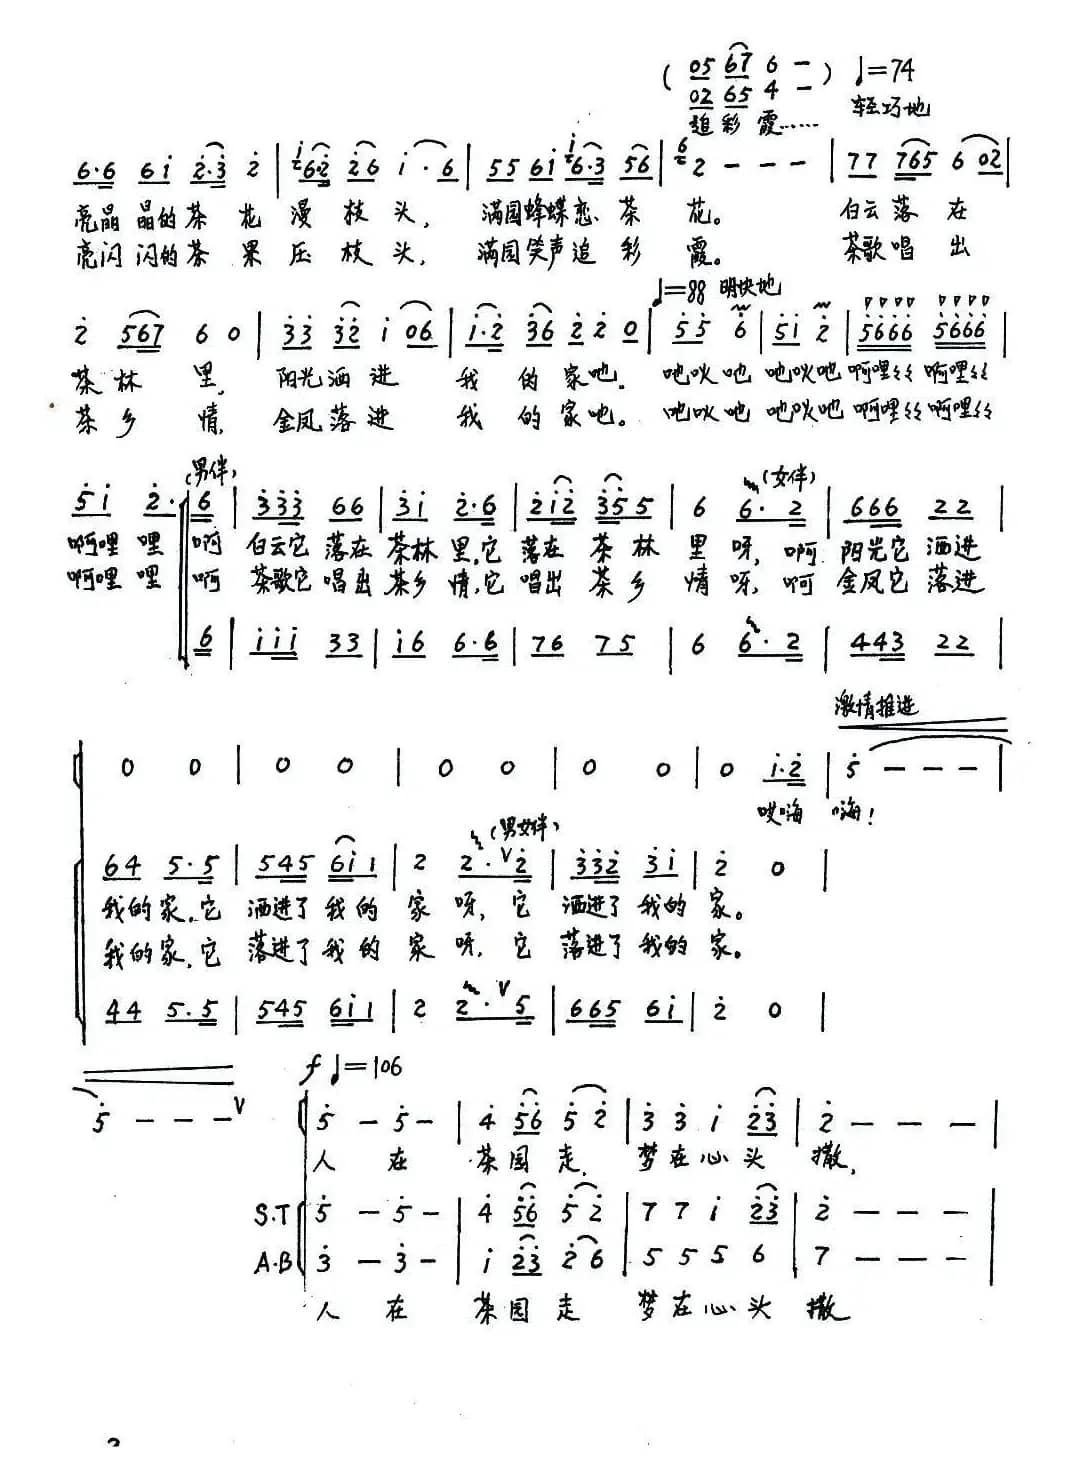 (05 67 6 -) ♩=74
02 65 4 -
追彩霞…… 轻巧地
6·6 6i 2·3 2 | 6·2 26 i·6 | 55 6i 6·3 56 | 2 - - - | 77 765 6 02 |
亮晶晶的茶花漫枝头,满园蜂蝶恋茶花。白云落在
亮闪闪的茶果压枝头,满园笑声追彩霞。茶歌唱出
♩=88 明快地
2 567 6 0 | 33 32 i 06 | 1·2 36 2 2 0 | 55 6 | 5i 2 | 5666 5666 |
茶林里,阳光洒进我的家吔。吔吙吔吔吙吔啊哩哩哩啊哩哩哩
茶乡情,金凤落进我的家吔。吔吙吔吔吙吔啊哩哩哩啊哩哩哩
(男伴) (女伴)
5i 2· 6 | 333 66 | 3i 2·6 | 2i2 355 | 6 6·2 | 666 22 |
啊哩哩啊白云它落在茶林里,它落在茶林里呀,啊阳光它洒进
啊哩哩啊茶歌它唱出茶乡情,它唱出茶乡情呀,啊金凤它落进
6 | iii 33 | i6 6·6 | 76 75 | 6 6·2 | 443 22 |
激情推进
0 0 | 0 0 | 0 0 | 0 0 | 0 i·2 | 5 - - - |
哎嗨嗨!
(男女伴)
64 5·5 | 545 6i1 | 2 2·V2 | 332 3i | 2 0 |
我的家,它洒进了我的家呀,它洒进了我的家。
我的家,它落进了我的家呀,它落进了我的家。
44 5·5 | 545 6i1 | 2 2·V5 | 665 6i | 2 0 |
f ♩=106
5 - - - V 5 - 5 - | 4 56 5 2 | 3 3 i 23 | 2 - - - |
人在茶园走,梦在心头撒,
S.T 5 - 5 - | 4 56 5 2 | 7 7 i 23 | 2 - - - |
A.B 3 - 3 - | i 23 2 6 | 5 5 5 6 | 7 - - - |
人在茶园走梦在心头撒